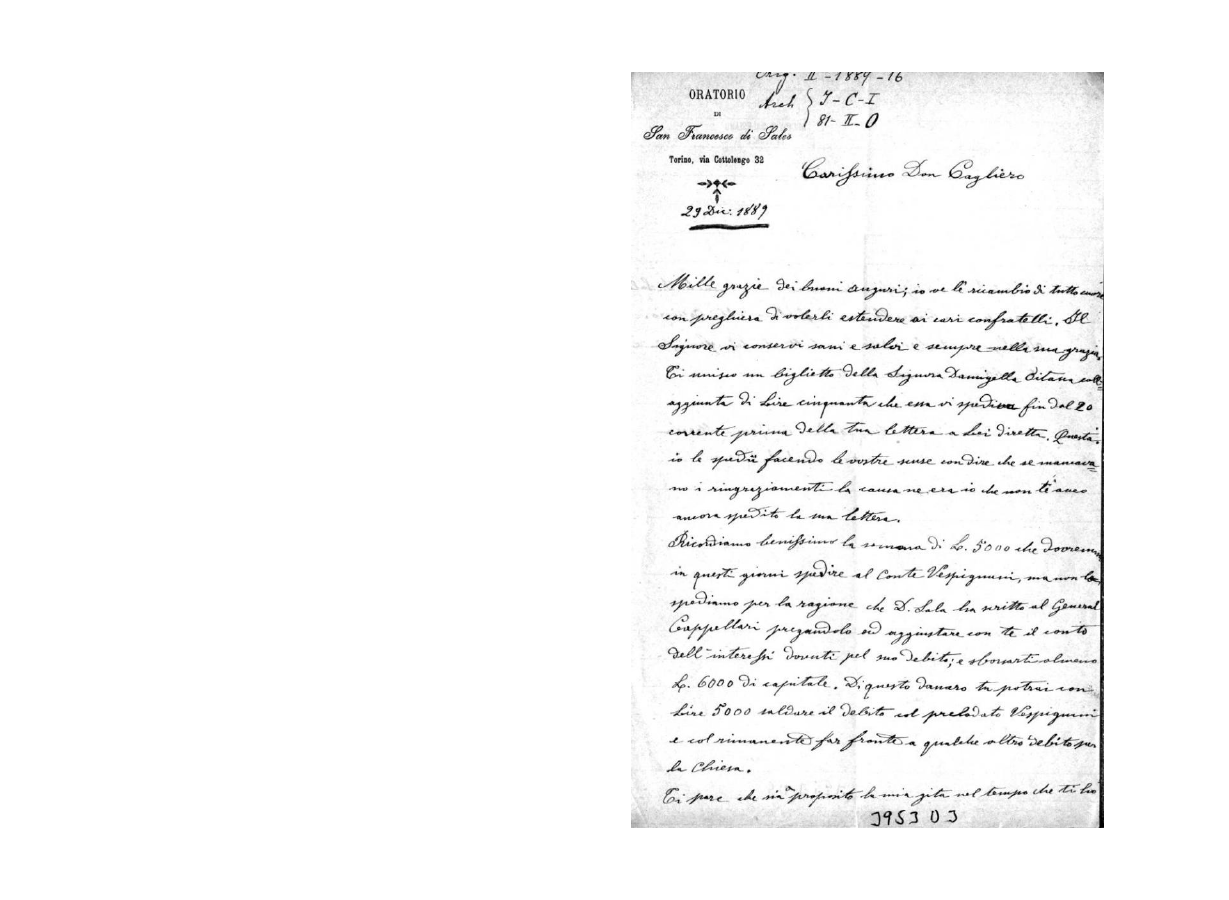 Orig. II - 1889 - 16
ORATORIO
DI
San Francesco di Sales
Torino, via Cottolengo 32
Arch { J - C - I
81 - II - O
Carissimo Don Cagliero
29 Dic. 1889
Mille grazie dei buoni auguri; io ve li ricambio di tutto cuore
con preghiera di volerli estendere ai cari confratelli. Il
Signore vi conservi sani e salvi e sempre nella sua grazia.
Ti unisco un biglietto della Signora Damigella coll'
aggiunta di Lire cinquanta che essa vi spediva fin dal 20
corrente prima della tua lettera a Lei diretta. Questa
io le spedii facendo le vostre scuse con dire che se mancava=
no i ringraziamenti la causa ne era io che non te avea
ancora spedito la sua lettera.
Ricordiamo benissimo la somma di L. 5000 che dovremmo
in questi giorni spedire al Conte Vespignani, ma non la
spediamo per la ragione che D. Sala ha scritto al General
Cappellari pregandolo ad aggiustare con te il conto
dell'interessi dovuti pel suo debito; e sborsarti almeno
L. 6000 di capitale. Di questo danaro tu potrai con
Lire 5000 saldare il debito col prelodato Vespignani
e col rimanente far fronte a qualche altro debito per
la Chiesa.
Ti pare che sia a proposito la mia gita nel tempo che ti ho